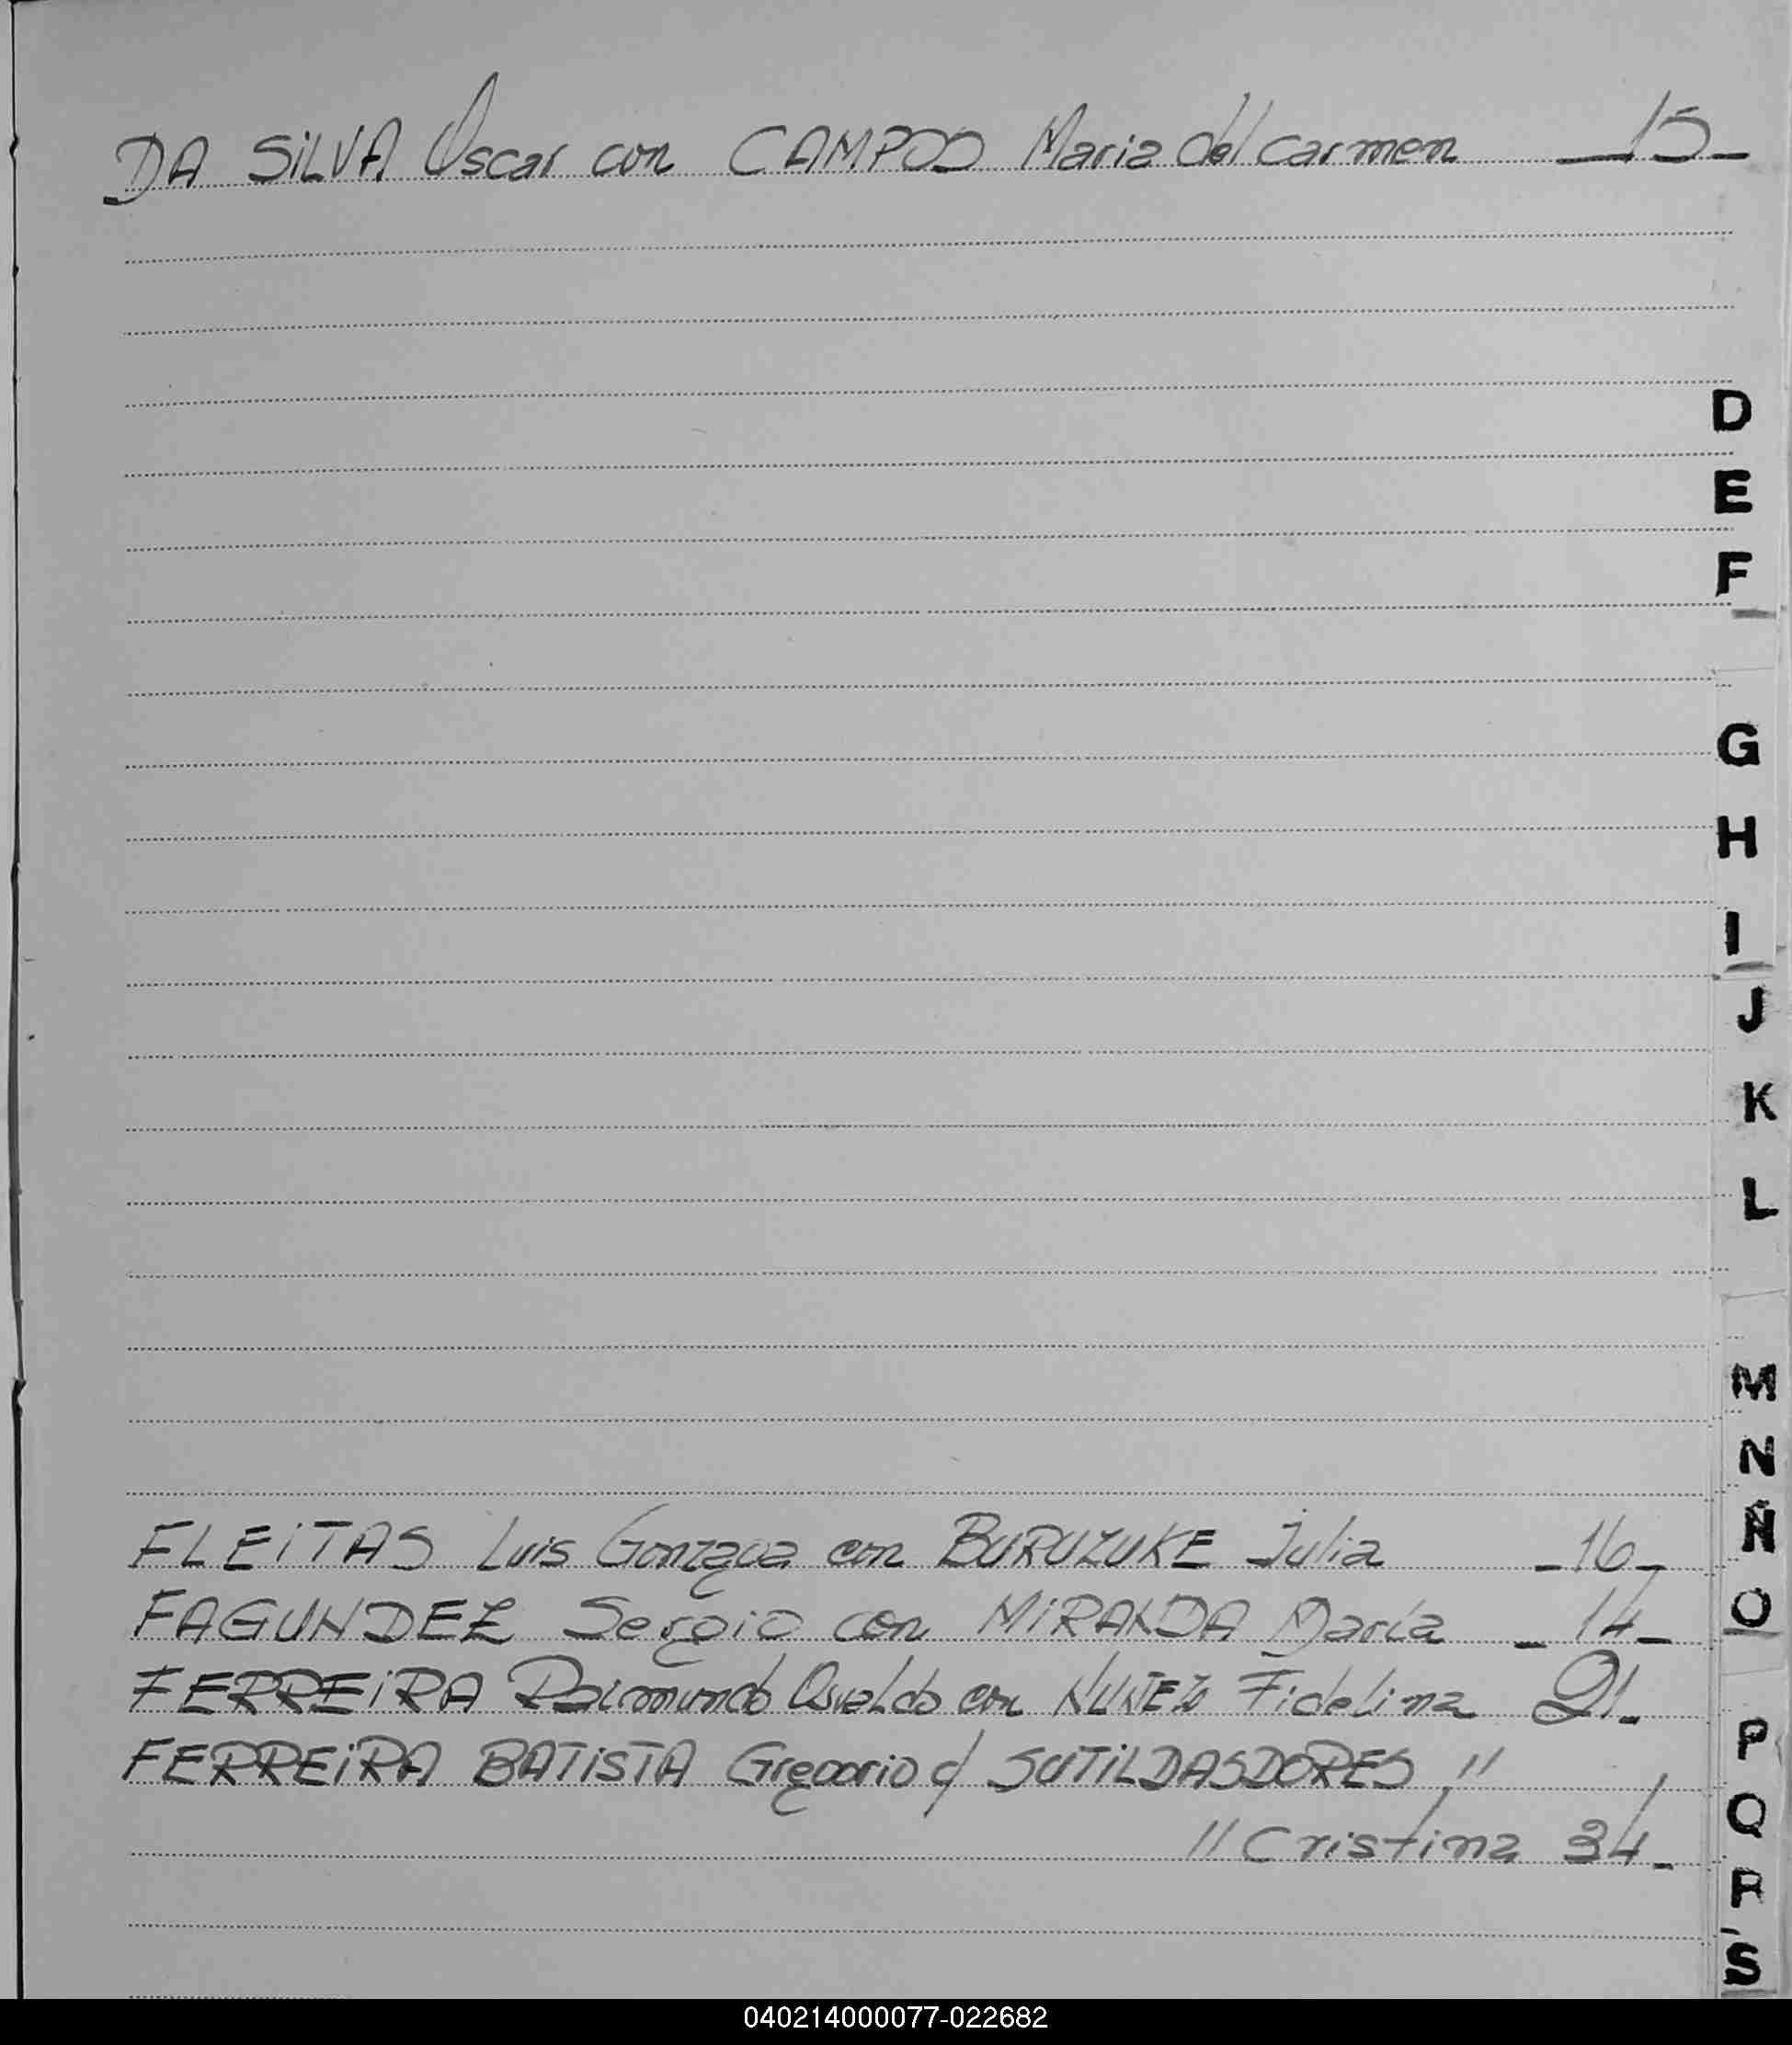 DA SILVA Oscar con CAMPOS Maria del Carmen 15
D
E
F
G
H
I
J
K
L
M
N
Ñ
O
P
Q
R
S
FLEITAS Luis Gonzaga con BURUZUKE Julia 16
FAGUNDEZ Sergio con MIRANDA María 14
FERREIRA Raimundo Osvaldo con NUÑEZ Fidelina 21
FERREIRA BATISTA Gregorio c/ SUTIL DAS DORES "
" Cristina 34
040214000077-022682